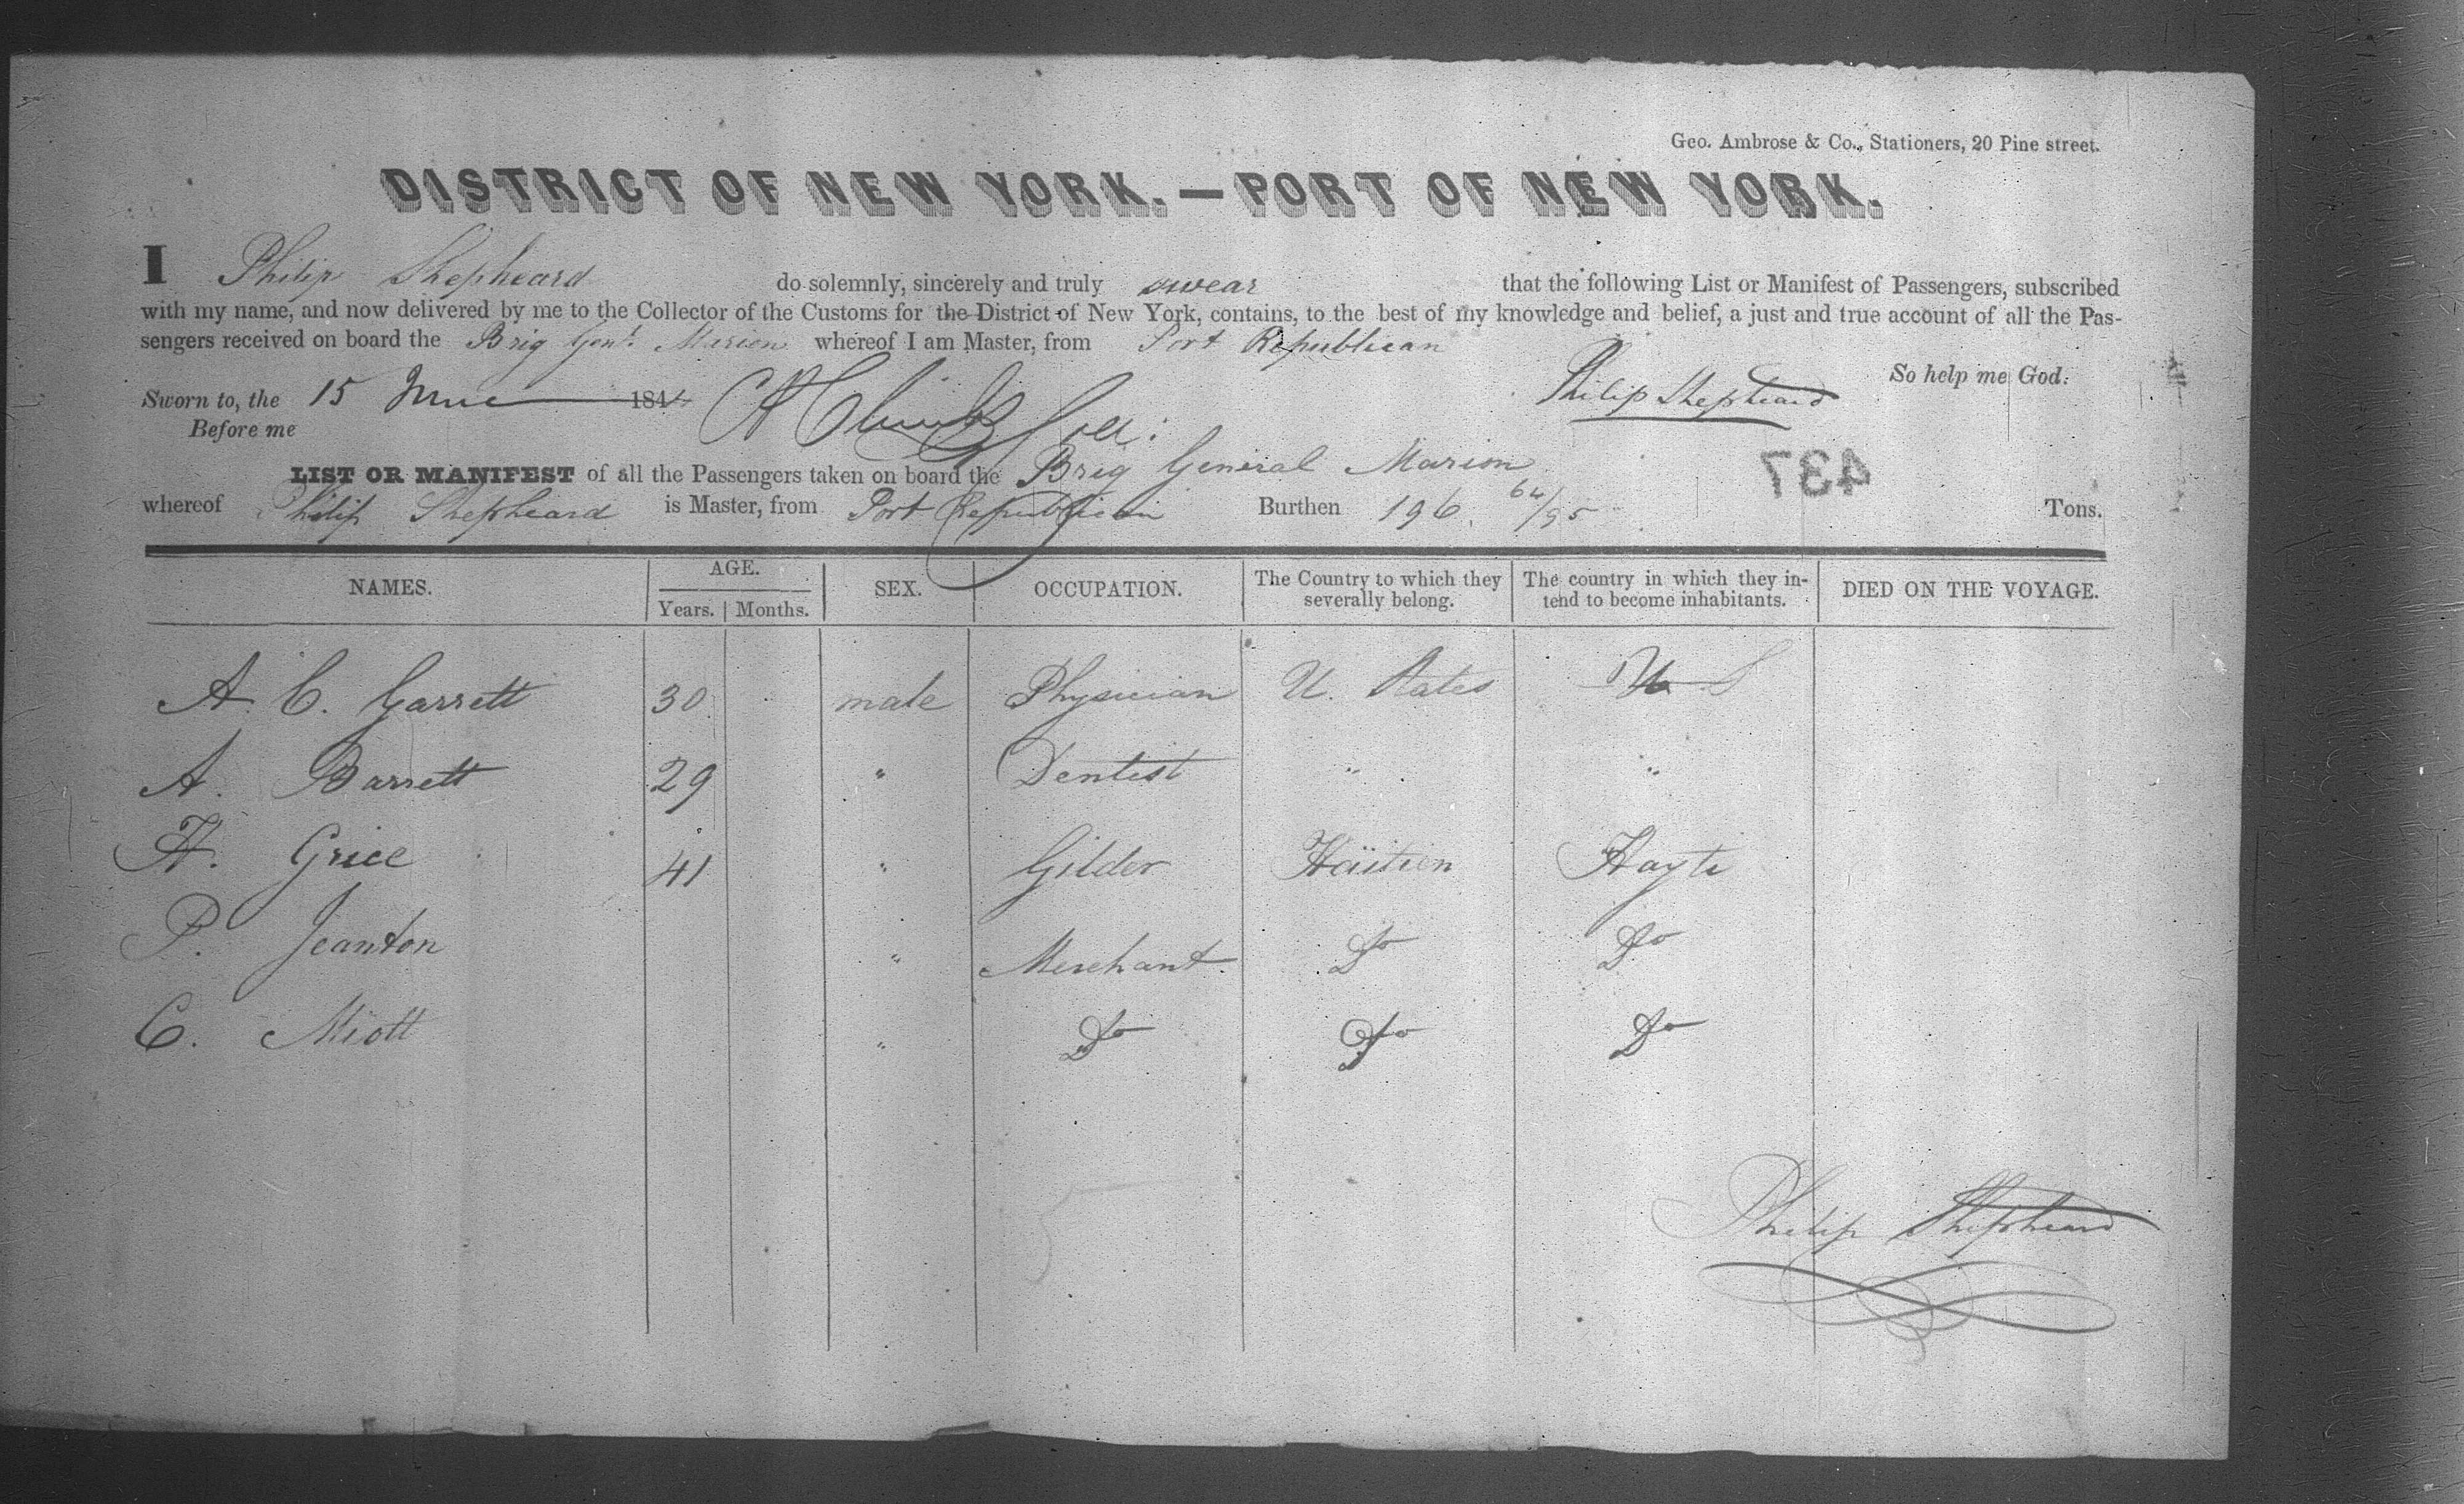 Geo. Ambrose & Co., Stationers, 20 Pine street.
DISTRICT OF NEW YORK. — PORT OF NEW YORK.
I Philip Shepheard do solemnly, sincerely and truly swear that the following List or Manifest of Passengers, subscribed
with my name, and now delivered by me to the Collector of the Customs for the District of New York, contains, to the best of my knowledge and belief, a just and true account of all the Pas-
sengers received on board the Brig Genl. Marion whereof I am Master, from Port Republican
So help me God.
Sworn to, the 15 June 1844 Philip Shepheard
Before me
LIST OR MANIFEST of all the Passengers taken on board the Brig General Marion
437
whereof Philip Shepheard is Master, from Port Republican Burthen 196. 64/95 Tons.
NAMES. AGE. Years. Months. SEX. OCCUPATION. The Country to which they severally belong. The country in which they in-tend to become inhabitants. DIED ON THE VOYAGE.
A. C. Garrett 30 male Physician U. States U S
A. Barrett 29 " Dentist " "
H. Grice 41 " Gilder Haïtien Hayti
P. Jeanton " Merchant Do Do
C. Miott " Do Do Do
Philip Shepheard